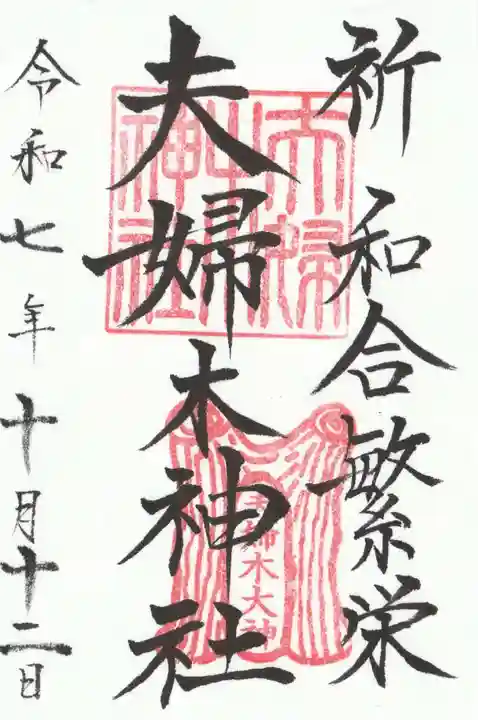 祈 和合繁栄
夫婦木神社
令和七年十月十二日
夫婦木神社
夫婦木大神